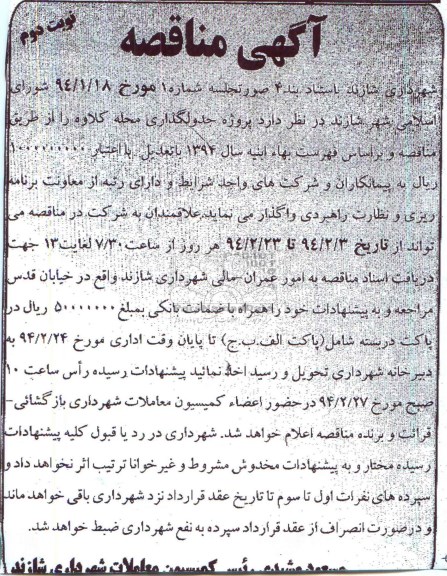 نوبت دوم
آگهی مناقصه
شهرداری شازند باستناد بند ۴ صورتجلسه شماره ۱ مورخ ۹۴/۱/۱۸ شورای
اسلامی شهر شازند در نظر دارد پروژه جدولگذاری محله کلاوه را از طریق
مناقصه و براساس فهرست بهاء ابنیه سال ۱۳۹۴ باتعدیل با اعتبار ۱۰۰۰۰۰۰۰۰۰
ریال به پیمانکاران و شرکت های واجد شرایط و دارای رتبه از معاونت برنامه
ریزی و نظارت راهبردی واگذار می نماید.علاقمندان به شرکت در مناقصه می
تواند از تاریخ ۹۴/۲/۳ تا ۹۴/۲/۲۳ هر روز از ساعت ۷/۳۰ لغایت ۱۳ جهت
دریافت اسناد مناقصه به امور عمران-مالی شهرداری شازند واقع در خیابان قدس
مراجعه و به پیشنهادات خود را همراه با ضمانت بانکی بمبلغ ۵۰۰۰۰۰۰۰ ریال در
پاکت دربسته شامل(پاکت الف.ب.ج) تا پایان وقت اداری مورخ ۹۴/۲/۲۴ به
دبیرخانه شهرداری تحویل و رسید اخذ نمائید پیشنهادات رسیده رأس ساعت ۱۰
صبح مورخ ۹۴/۲/۲۷ درحضور اعضاء کمیسیون معاملات شهرداری بازگشائی-
قرائت و برنده مناقصه اعلام خواهد شد. شهرداری در رد یا قبول کلیه پیشنهادات
رسیده مختار و به پیشنهادات مخدوش مشروط و غیرخوانا ترتیب اثر نخواهد داد و
سپرده های نفرات اول تا سوم تا تاریخ عقد قرارداد نزد شهرداری باقی خواهد ماند
و درصورت انصراف از عقد قرارداد سپرده به نفع شهرداری ضبط خواهد شد.
مسعود رئیس کمیسیون معاملات شهرداری شازند